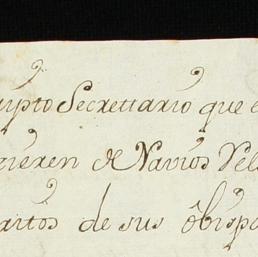 ripto Secrettario que e
rieren de Navios Vel
artos de sus obispa